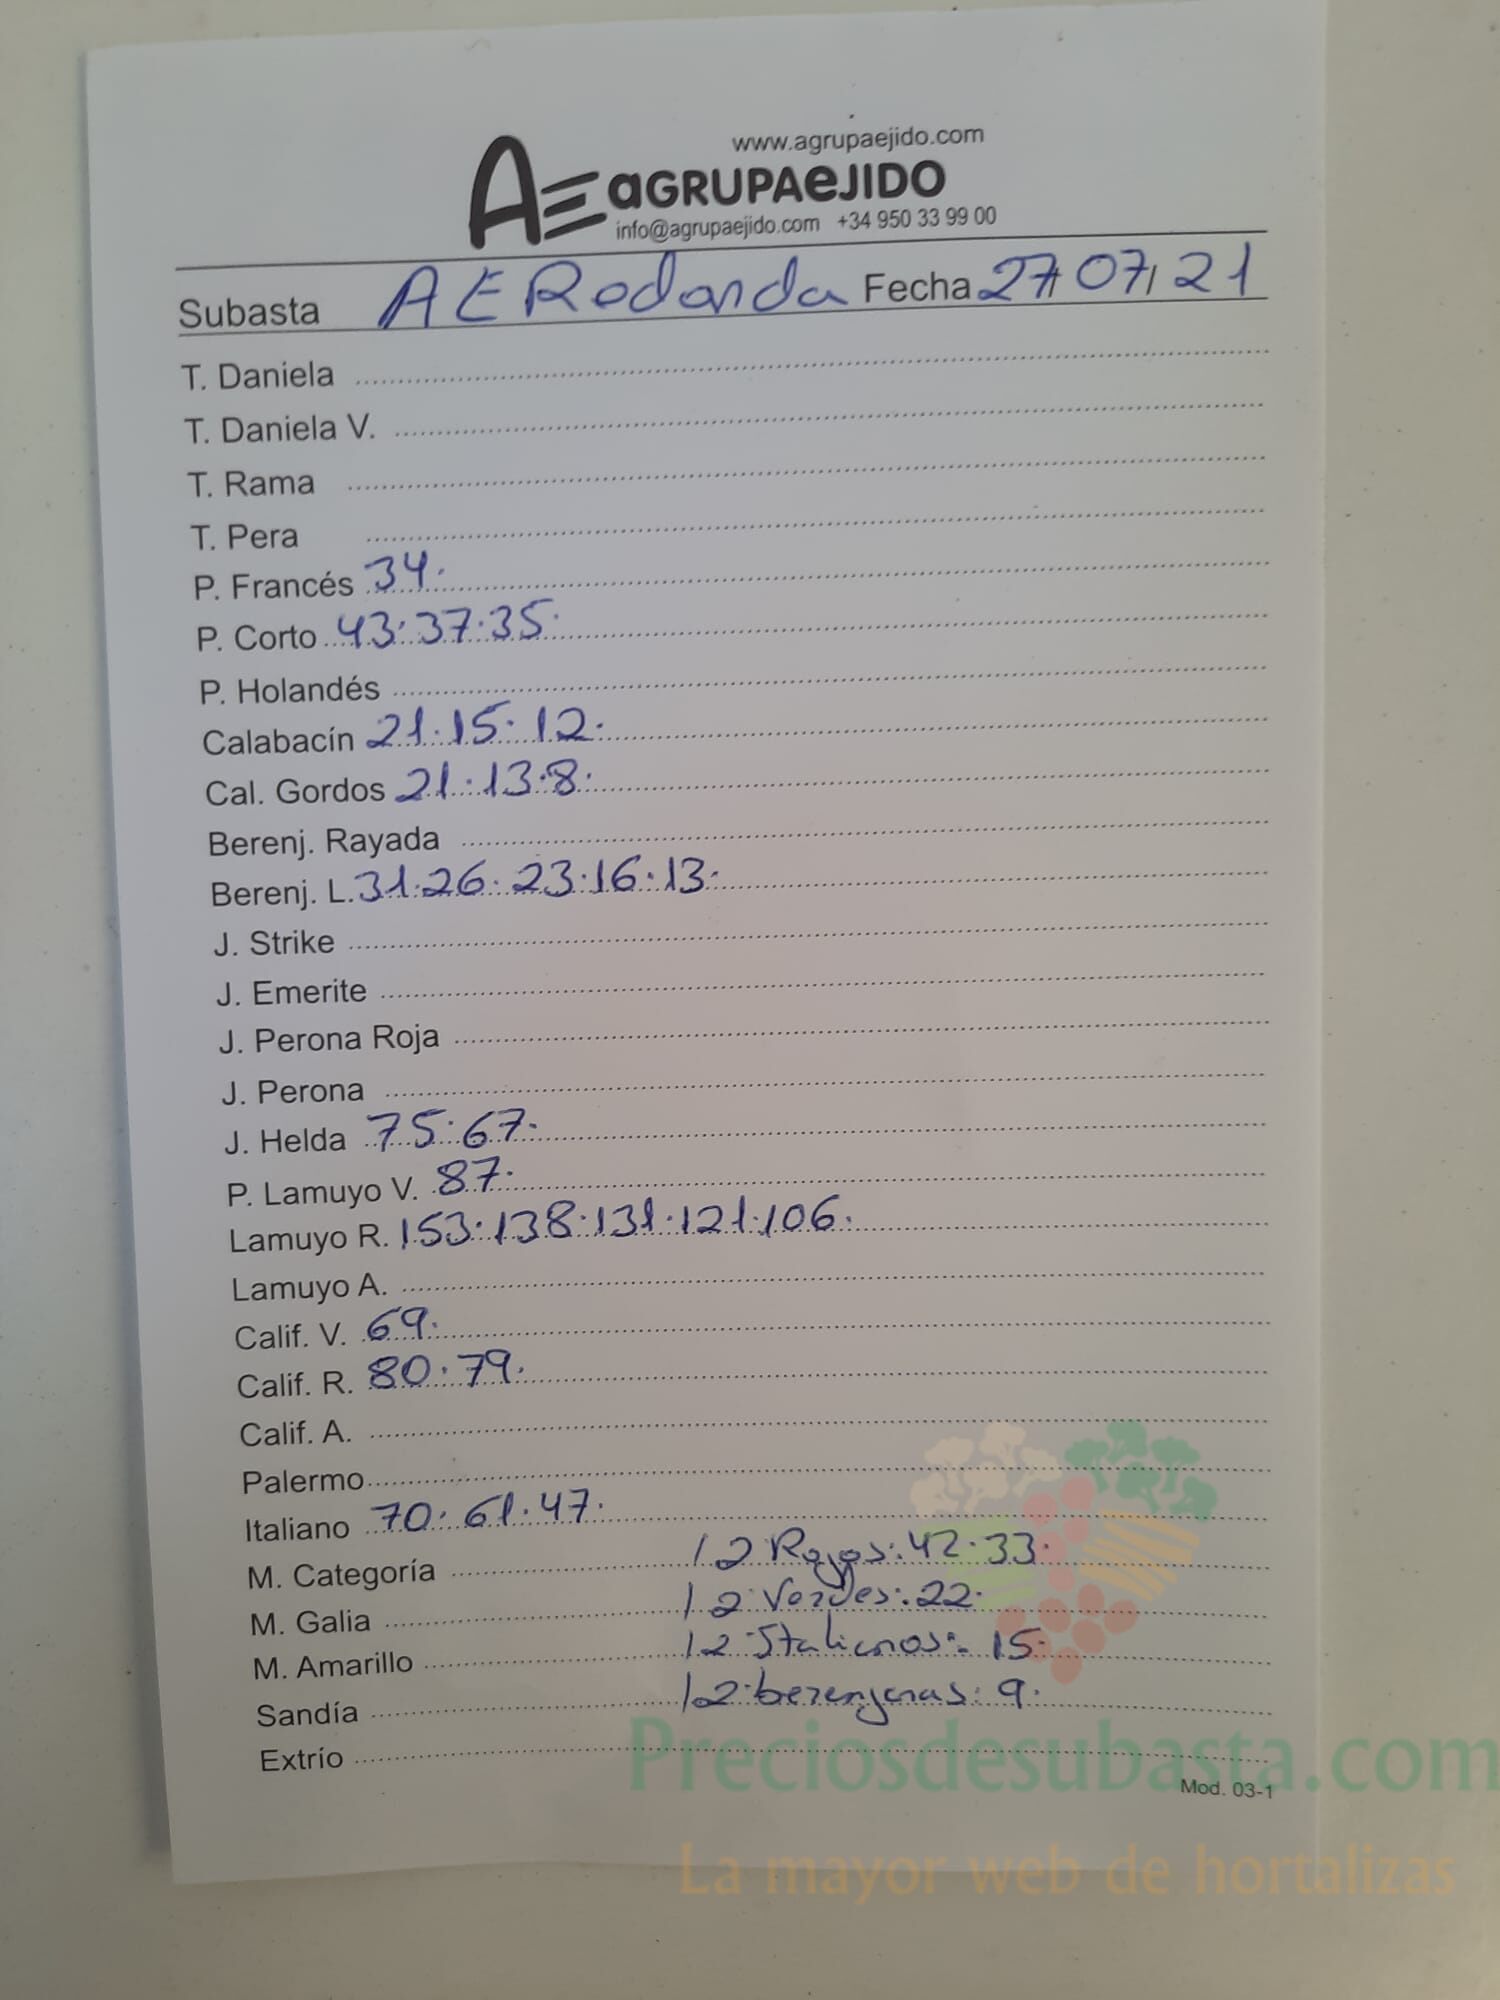 www.agrupaejido.com
AE aGRUPAeJIDO
info@agrupaejido.com +34 950 33 99 00
Subasta AE Redonda Fecha 27/07/21
T. Daniela
T. Daniela V.
T. Rama
T. Pera
P. Francés 34.
P. Corto 43.37.35.
P. Holandés
Calabacín 21.15.12.
Cal. Gordos 21.13.8.
Berenj. Rayada
Berenj. L. 31.26.23.16.13.
J. Strike
J. Emerite
J. Perona Roja
J. Perona
J. Helda 75.67.
P. Lamuyo V. 87.
Lamuyo R. 153.138.131.121.106.
Lamuyo A.
Calif. V. 69.
Calif. R. 80.79.
Calif. A.
Palermo
Italiano 70.61.47.
M. Categoría 12 Rojos: 42.33.
M. Galia 12 Verdes: 22.
M. Amarillo 12 Italianos: 15.
Sandía 12 berenjenas: 9.
Extrío
Preciosdesubasta.com
Mod. 03-1
La mayor web de hortalizas